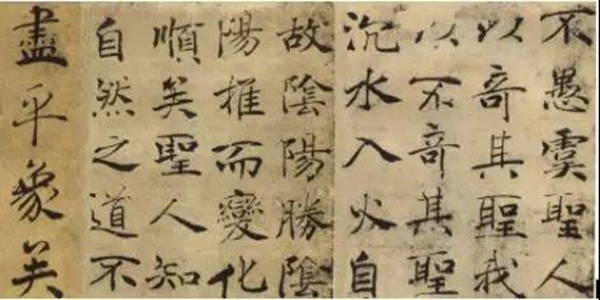 不愚虞聖人
以奇其聖我
以不奇其聖
沉水入火自
故陰陽勝陰
陽推而變化
順矣聖人知
自然之道不
盡乎象矣